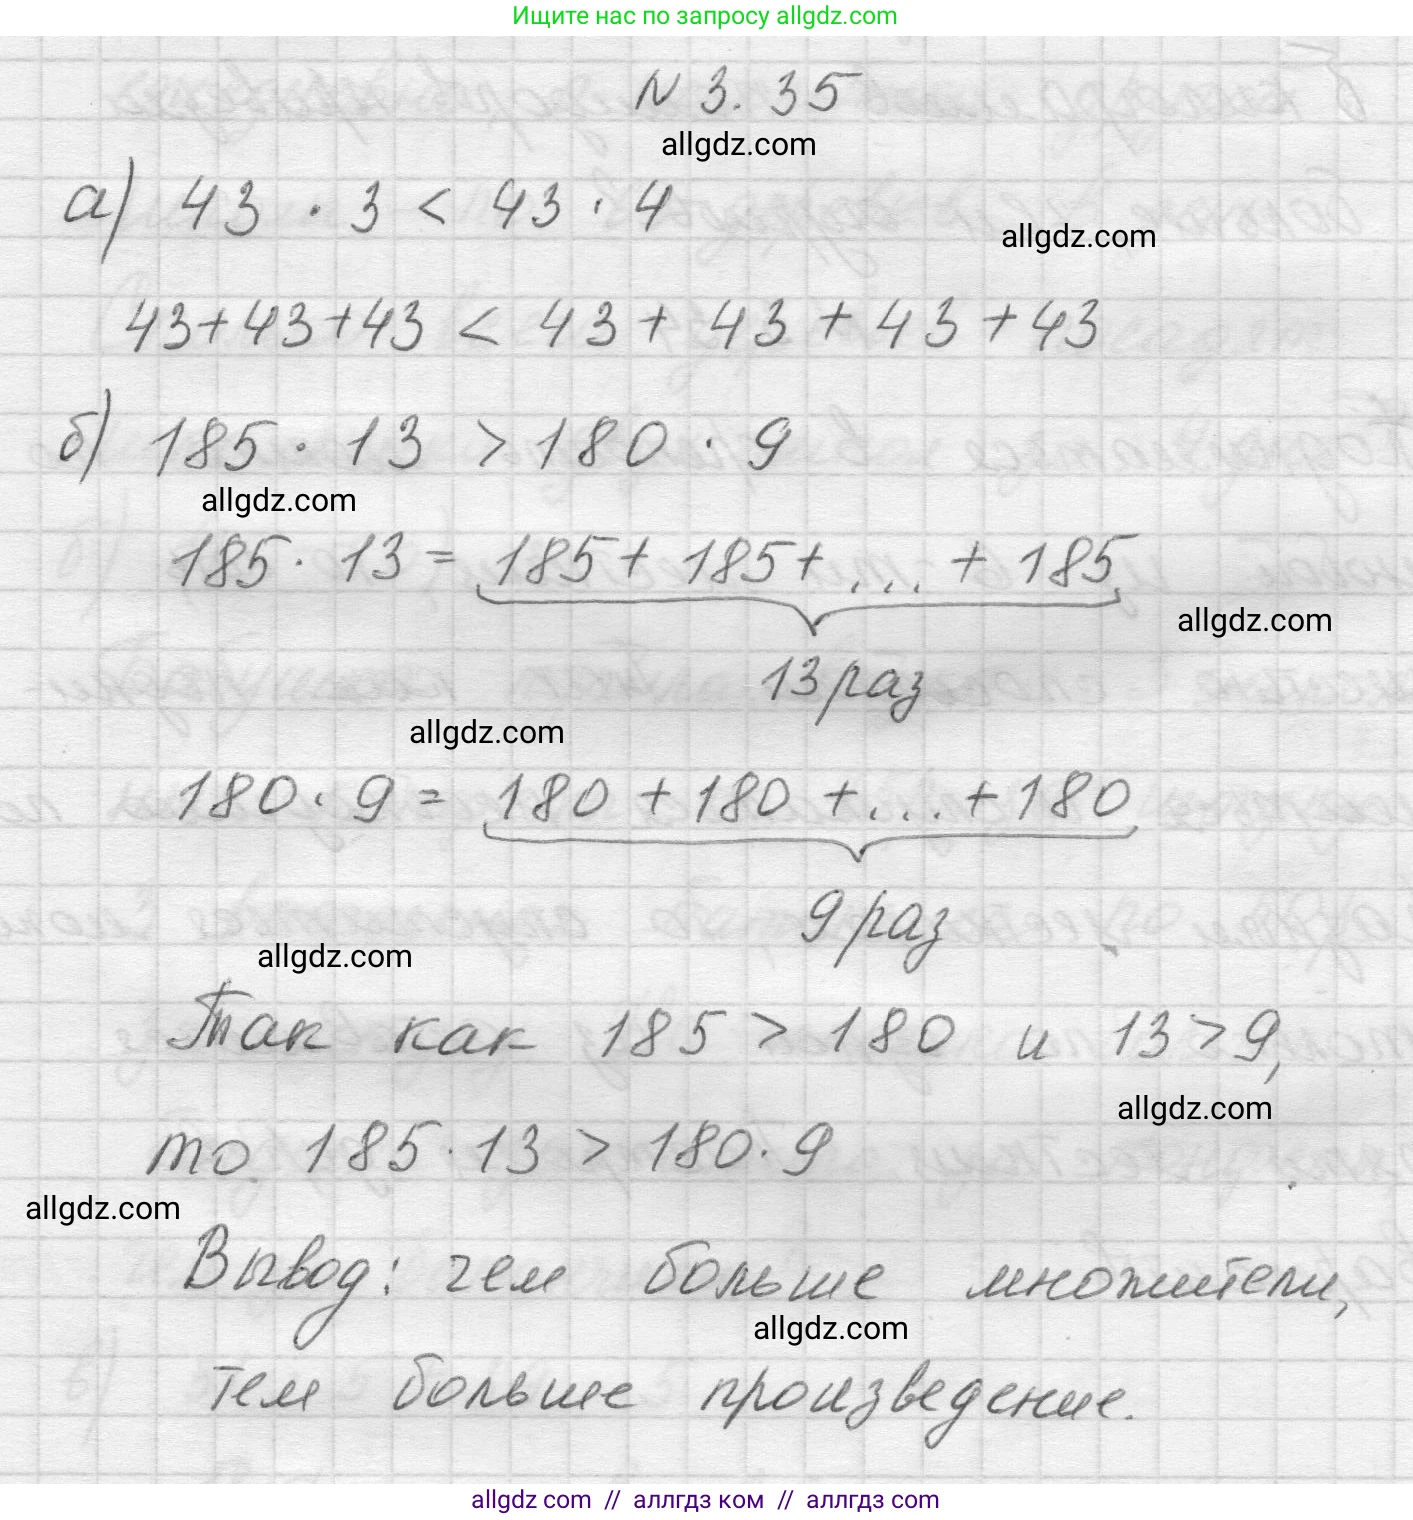 Ищите нас по запросу allgdz.com
N 3. 35
allgdz.com
а) 43 · 3 < 43 · 4
allgdz.com
43+43+43 < 43 + 43 + 43 + 43
б) 185 · 13 > 180 · 9
allgdz.com
185 · 13 = 185 + 185 + ... + 185
allgdz.com
13 раз
allgdz.com
180 · 9 = 180 + 180 + ... + 180
9 раз
allgdz.com
Так как 185 > 180 и 13 > 9,
allgdz.com
то 185 · 13 > 180 · 9
allgdz.com
Вывод: чем больше множители,
allgdz.com
тем больше произведение.
allgdz com // аллгдз ком // аллгдз com